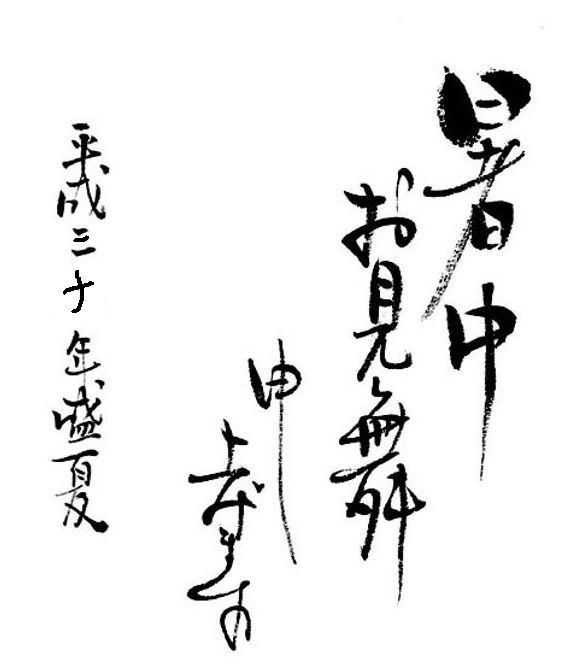 暑中
お見舞
申し
上げます
平成三十年盛夏